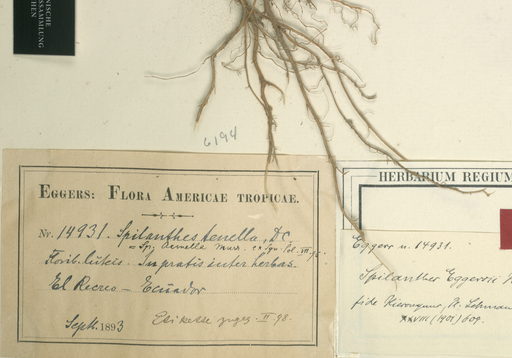 NISCHE
SSAMMLUNG
CHEN
6194
EGGERS: FLORA AMERICAE TROPICAE.
Nr. 14931. Spilanthes tenella, DC
Florib. luteis. In pratis inter herbas.
El Recreo — Ecuador
Sept. 1893
II 98.
HERBARIUM REGIUM
Eggers n. 14931.
Spilanthes Eggersii
fide Hieronymus,
XXVIII (1901) 609.